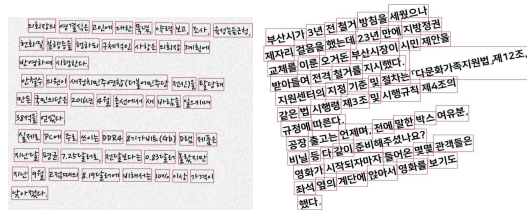 의회장의 영결식은 고인에 대한 묵념, 약력 보고, 조사, 육성녹음근청,
헌화 및 분향 등을 행하되 구체적인 사항은 의회장 계획에
반영하여 시행한다.
안철수 의원이 새정치민주연합(더불어민주당 전신)을 탈당해
만든 국민의당은 2016년 4월 총선에서 새 바람을 일으키며
38석을 얻었다
실제로 PC에 주로 쓰이는 DDR4 8기가비트(Gb) D램 제품은
지난달 평균 7.25달러로, 전달보다는 0.83달러 올랐지만
지난 9월 고점때의 8.19달러에 비해서는 10% 이상 가격이
낮아졌다.
부산시가 3년 전 철거 방침을 세웠으나
제자리 걸음을 했는데 23년 만에 지방정권
교체를 이룬 오거돈 부산시장이 시민 제안을
받아들여 전격 철거를 지시했다.
지원센터의 지정 기준 및 절차는 「다문화가족지원법」제12조,
같은 법 시행령 제3조 및 시행규칙 제4조의
규정에 따른다.
공장 출고는 언제며, 전에 말한 박스 여유분,
비닐 등 다 같이 준비해주셨나요?
영화가 시작되자마자 들어온 몇몇 관객들은
좌석 옆의 계단에 앉아서 영화를 보기도
했다.